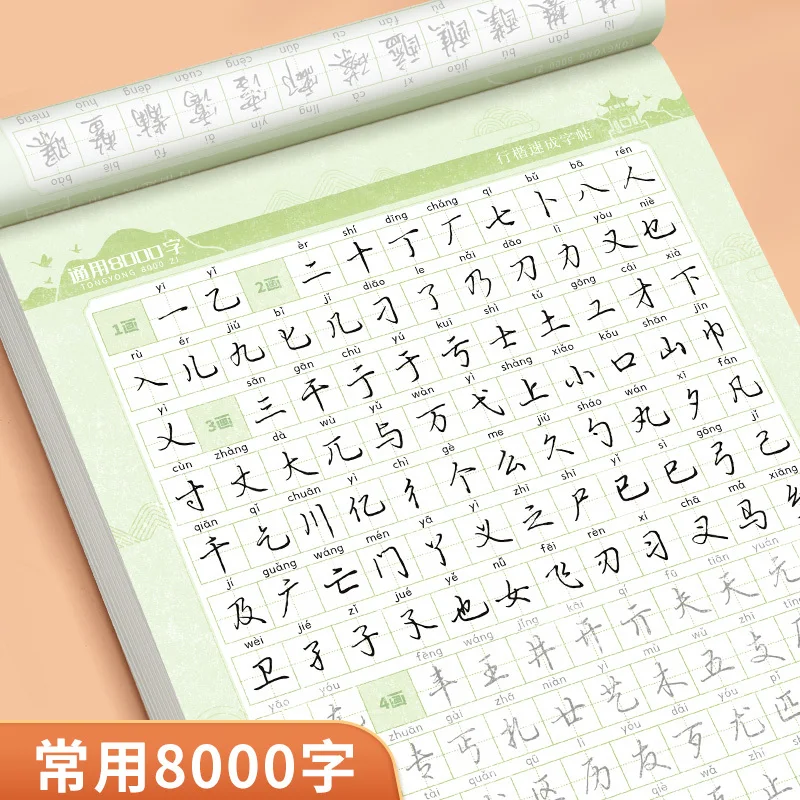 通用8000字
TONGYONG 8000 ZI
行楷速成字帖
yī yǐ èr shí dīng chǎng qī bǔ bā rén
1画 一 乙 2画 二 十 丁 厂 七 卜 八 人
rù ér jiǔ bǐ jǐ diāo le nǎi dāo lì yòu niè
入 儿 九 匕 几 刁 了 乃 刀 力 又 乜
yì sān gān chù yú kuī shì tǔ gōng cái xià
乂 3画 三 干 亍 于 亏 士 土 工 才 下
cùn zhàng dà wù yǔ wàn yì shàng xiǎo kǒu shān jīn
寸 丈 大 兀 与 万 弋 上 小 口 山 巾
qiān qǐ chuān yì chì gè me jiǔ sháo wán xī fán
千 乞 川 亿 彳 个 么 久 勺 丸 夕 凡
jí guǎng wáng mén yā yì zhī shī yǐ sì gōng jǐ
及 广 亡 门 丫 义 之 尸 已 巳 弓 己
wèi jié zǐ jué yě nǚ fēi rèn xí chā mǎ xiāng
卫 孑 子 孓 也 女 飞 刃 习 叉 马
yāo yóu fēng wáng jǐng kāi qí fū tiān yuán
4画 丰 王 井 开 亓 夫 天 元
zhuān gài zhā niàn yì mù wǔ zhī
专 丐 扎 廿 艺 木 五 支
tài quǎn qū lì yǒu dǎi yóu pǐ
区 历 友 歹 尤 匹
常用8000字